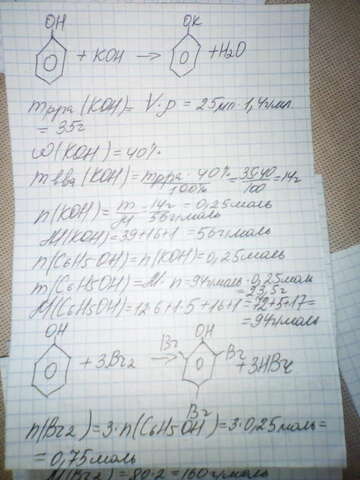 OH
OK
+ KOH → + H2O
mр-ра (KOH) = V·ρ = 25мл · 1,4г/мл
= 35г
ω(KOH) = 40%
mв-ва (KOH) = mр-ра · 40% / 100% = 35·40 / 100 = 14г
n(KOH) = m / M = 14г / 56г/моль = 0,25моль
M(KOH) = 39+16+1 = 56г/моль
n(C6H5OH) = n(KOH) = 0,25моль
m(C6H5OH) = M · n = 94г/моль · 0,25моль
= 23,5г
M(C6H5OH) = 12·6+1·5+16+1 = 72+5+17 =
= 94г/моль
OH
Br OH Br
+ 3Br2 → + 3HBr
Br
n(Br2) = 3·n(C6H5OH) = 3·0,25моль =
= 0,75моль
M(Br2) = 80·2 = 160г/моль